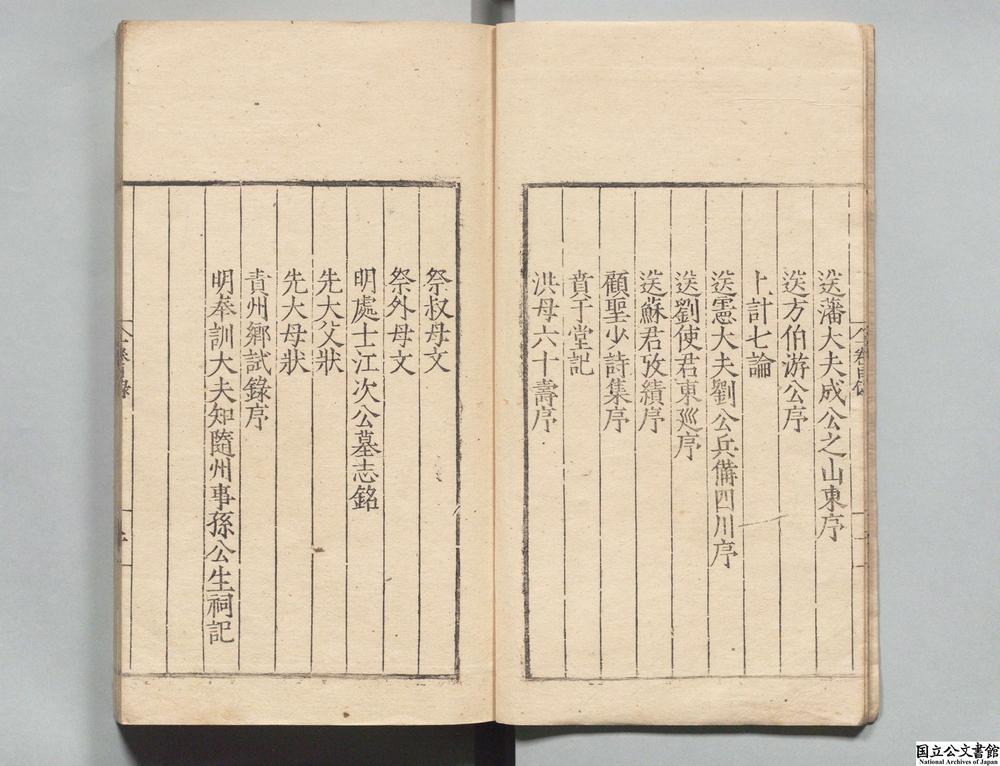 送藩大夫成公之山東序
送方伯游公序
上計七論
送憲大夫劉公兵備四川序
送劉使君東廵序
送蘇君攷績序
顧聖少詩集序
賁于堂記
洪母六十壽序
祭叔母文
祭外母文
明處士江次公墓志銘
先大父狀
先大母狀
貴州鄉試錄序
明奉訓大夫知隨州事孫公生祠記
国立公文書館
National Archives of Japan